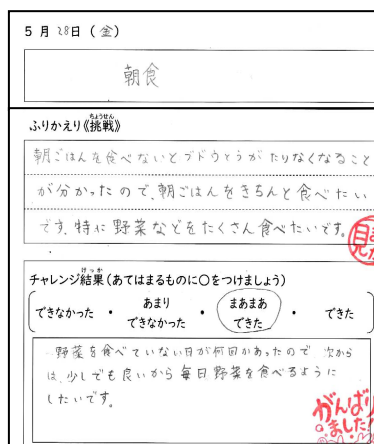 5月28日(金)
朝食
ふりかえり《挑戦》
ちょうせん
朝ごはんを食べないとブドウとうがたりなくなること
が分かったので、朝ごはんをきちんと食べたい
です。特に野菜などをたくさん食べたいです。
チャレンジ結果(あてはまるものに○をつけましょう)
けっか
できなかった ・ あまりできなかった ・ まあまあできた ・ できた
野菜を食べていない日が何回かあったので 次から
は、少しでも良いから毎日野菜を食べるように
したいです。
がんばり
ました!